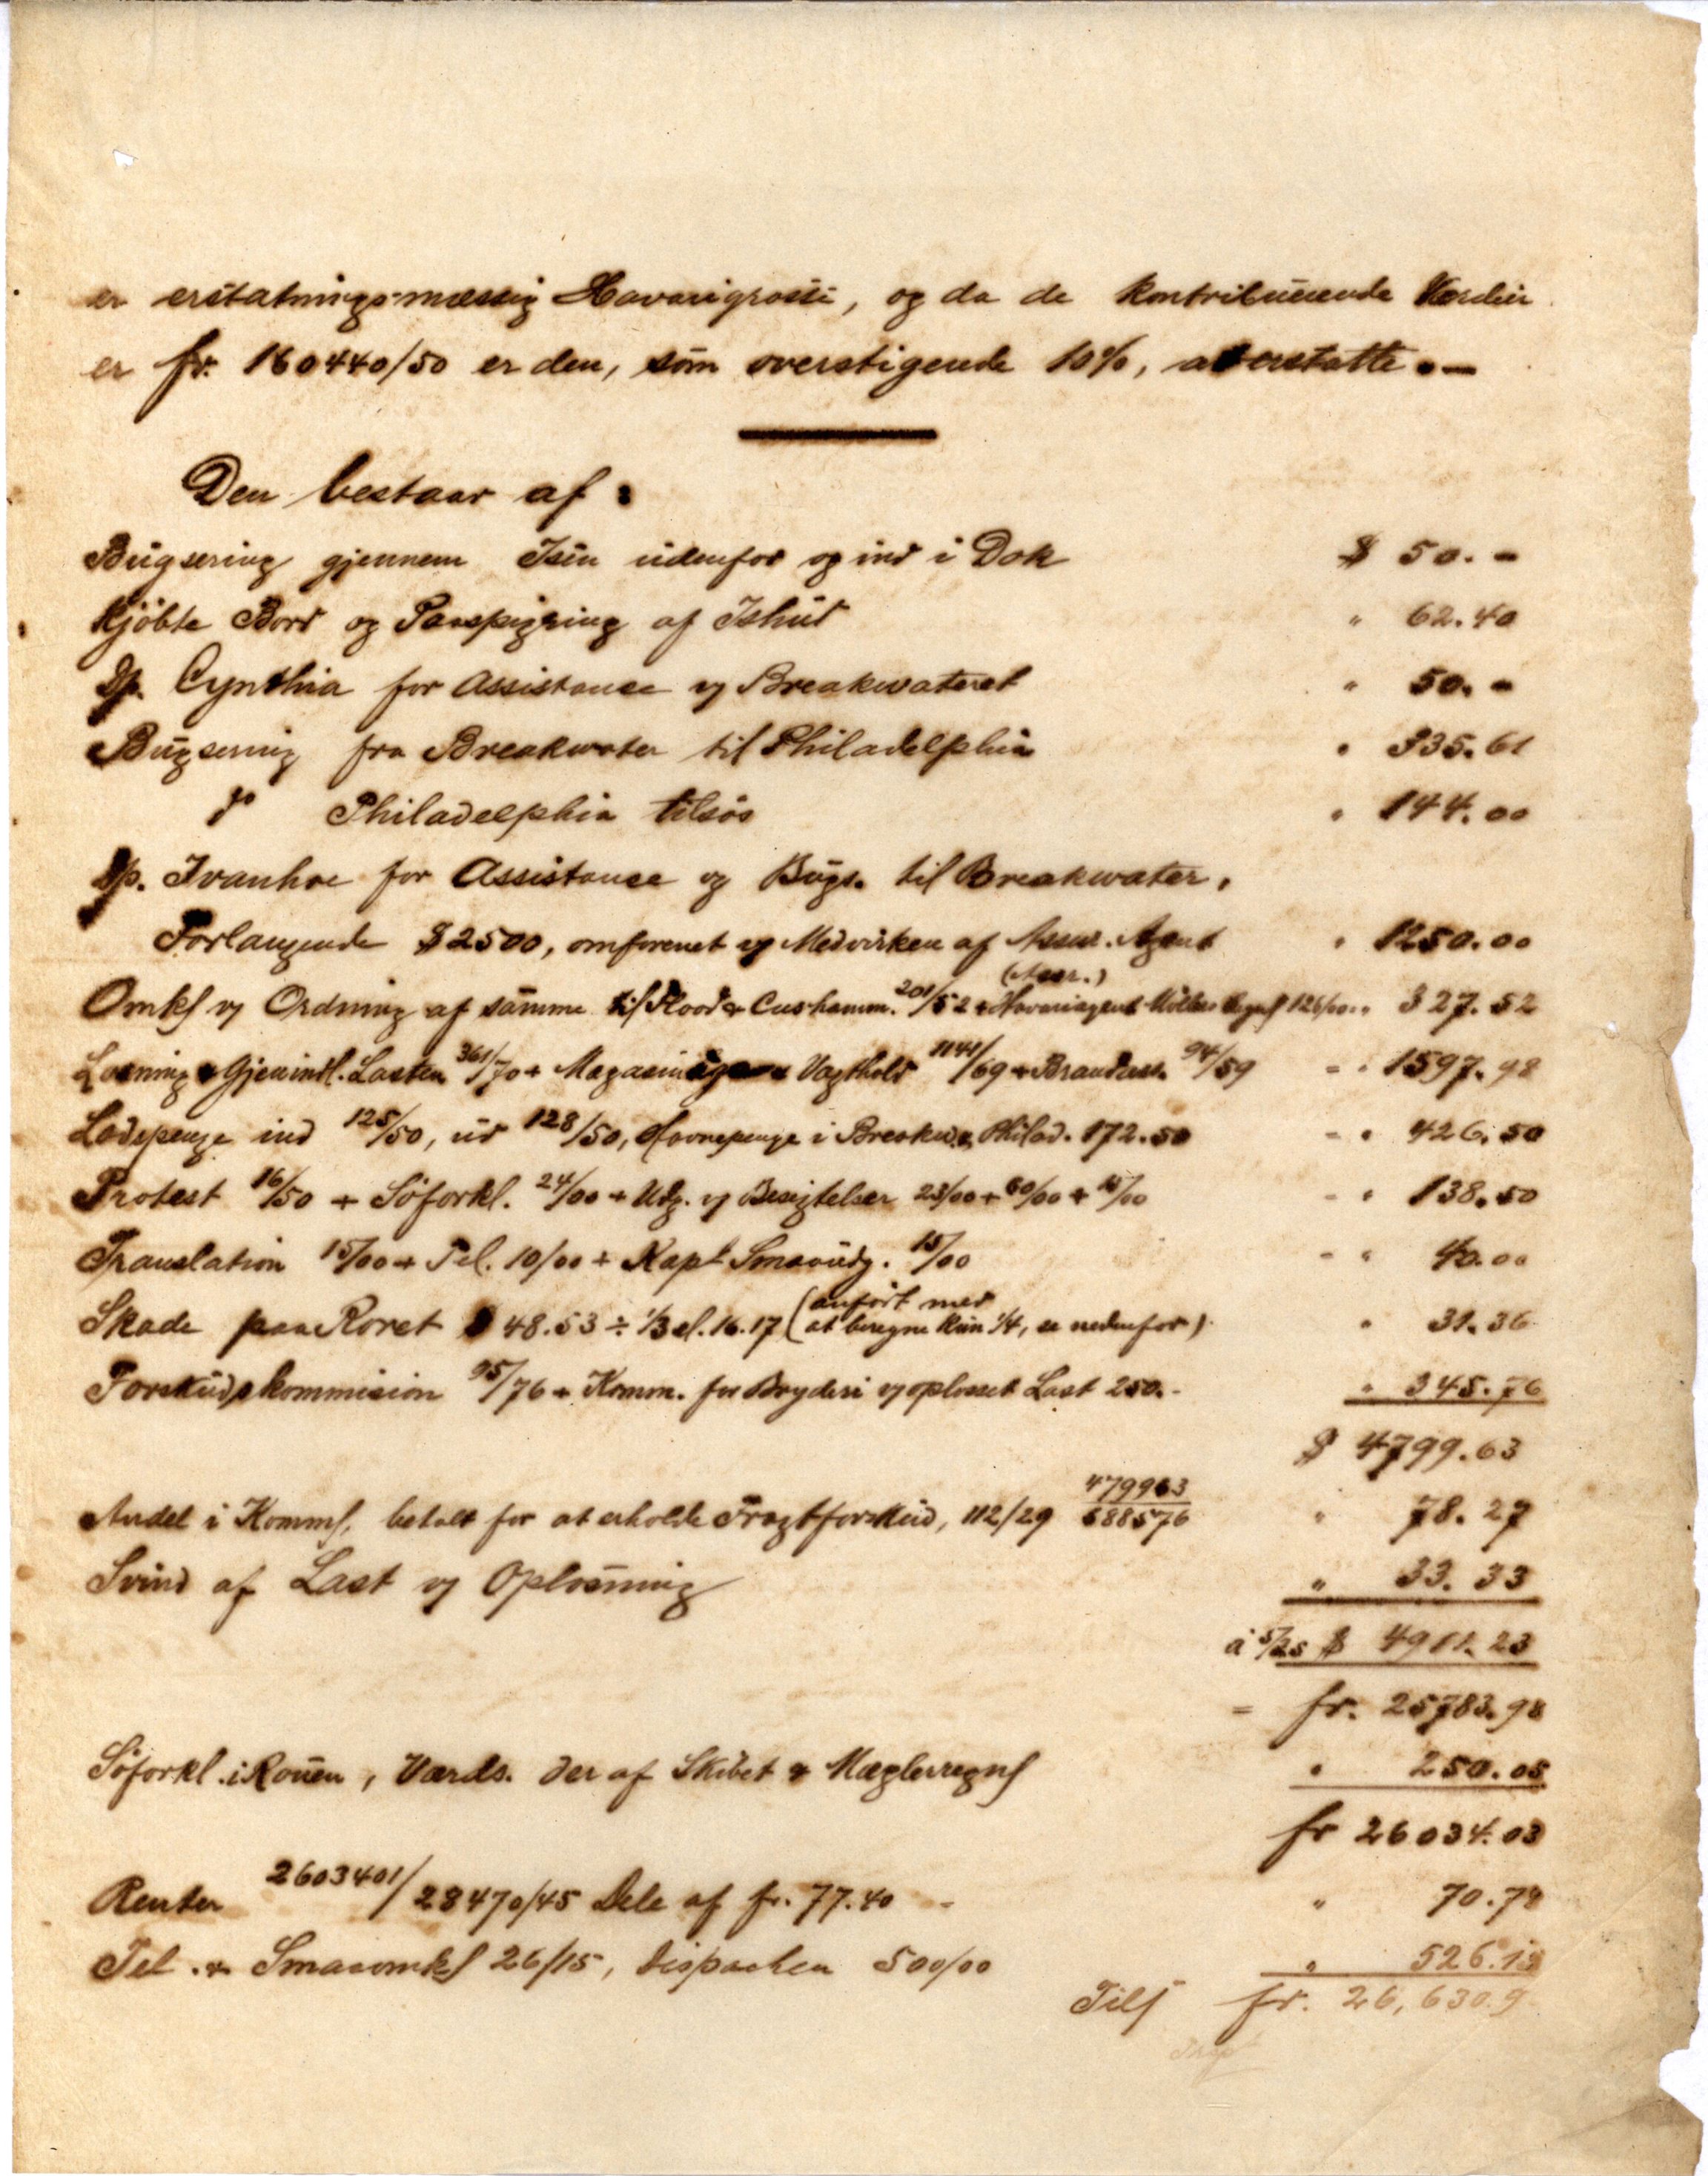 er erstatningsmæssig Havarigrosse, og da de kontribuerende Værdier
er fr. 160440/50 er den, som overstigende 10%, at erstatte. —
Den bestaar af:
Bugsering gjennem Isen udenfor og ind i Dok $ 50. -
Kjöbte Bord og Paaspigring af Ishud " 62.40
Dp. Cynthia for Assistance ved Breakwateret " 50. -
Bugsering fra Breakwater til Philadelphia " 335.61
do Philadelphia tilsøs " 144.00
Dp. Ivanhoe for Assistance og Bugs. til Breakwater.
Forlangende $2500, omforenet ved Medvirken af Assur. Agent " 1250.00
(Assr.)
Omks ved Ordning af samme til Flood & Cushamm. 201/52 + Havariagent Møllers Regns 126/00 " 327.52
Losning & Gjenindl. Lasten 361/70 + Magasin & Vagthold 1141/69 + Brandass. 94/59 - " 1597.98
Lodspenge ind 125/50, ud 128/50, Havnepenge i Breakw. & Philad. 172.50 - " 426.50
Protest 16/50 + Söforkl. 24/00 + Udg. ved Besigtelser 23/00 + 60/00 + 15/00 - " 138.50
Translation 15/00 + Tel. 10/00 + Kapt Smaaudg. 15/00 - " 40.00
Skade paa Roret $ 48.53 ÷ 1/3 el. 16.17 (anført med at beregne kun 1/4, se nedenfor) " 31.36
Forskudskommision 95/76 + Komm. for Bryderi ved oplosset Last 250. - " 345.76
$ 4799.63
Andel i Komms, betalt for at erholde Fragtforskud, 112/29 479963/688576 " 78.27
Svind af Last ved Oplosning " 33.33
a 5/25 $ 4911.23
= fr. 25783.98
Söforkl. i Rouen, Værds. der af Skibet & Mæglerregns " 250.05
fr 26034.03
Renter 2603401/28470/45 Dele af fr. 77.40 - " 70.78
Tel. & Smaaomks 26/15, Dispachen 500/00 " 526.15
Tils fr. 26,630.9